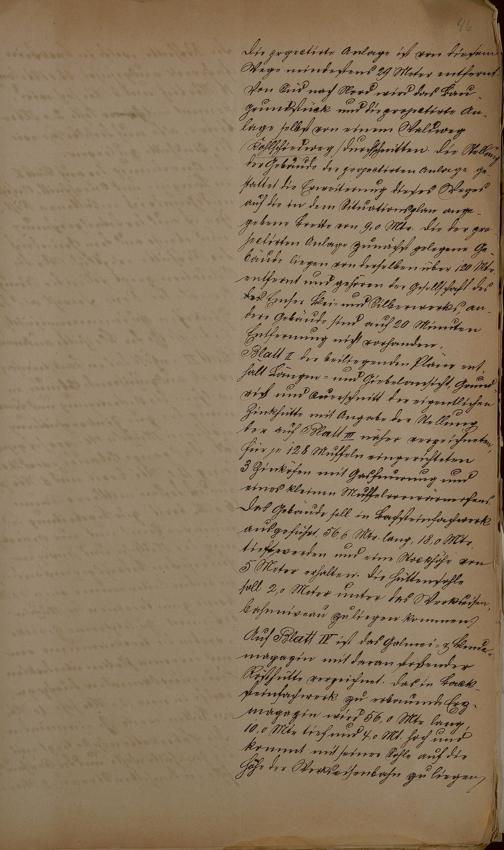 46
die projectirte Anlage ist von diesem
Wege mindestens 29 Meter entfernt.
Von Süd nach Nord wird das Bau-
grundstück und die projectirte An-
lage selbst von einem Feldweg
durchschnitten. Die Stellung
der Gebäude der projectirten Anlage ge-
stattet die Erweiterung dieses Weges
auf die in dem Situationsplan ange-
gebene Breite von 9,0 Mtr. Die der pro-
jectirten Anlage zunächst gelegene Ge-
bäude liegen von derselben über 120 Mtr.
entfernt und gehören der Gesellschaft des
Emser Blei- und Silberwerks, an-
dere Gebäude sind auf 20 Minuten
Entfernung nicht vorhanden.
Blatt II der beiliegenden Pläne ent-
hält Längen- und Giebelansicht, Grund-
riß und Querschnitt der eigentlichen
Zinkhütte mit Angabe der Stellung
der auf Blatt III näher verzeichneten,
für je 128 Muffeln eingerichteten
3 Zinköfen mit Gasfeuerung und
eines kleinen Muffelvorwärmofens.
Das Gebäude soll in Backsteinfachwerk
ausgeführt, 56,6 Mtr. lang, 18,0 Mtr.
tief werden und eine Stockhöhe von
5 Meter erhalten. Die Hüttensohle
soll 2,0 Meter unter das Werkeisen-
bahnniveau zu liegen kommen.
Auf Blatt IV ist das Galmei- & Blende-
magazin mit daran stoßender
Rösthütte verzeichnet. Das in Back-
steinfachwerk zu erbauende Erz-
magazin wird 56,0 Mtr. lang,
10,0 Mtr. tief und 4,0 Mt. hoch und
kommt mit seiner Sohle auf die
Höhe der Werkeisenbahn zu liegen,